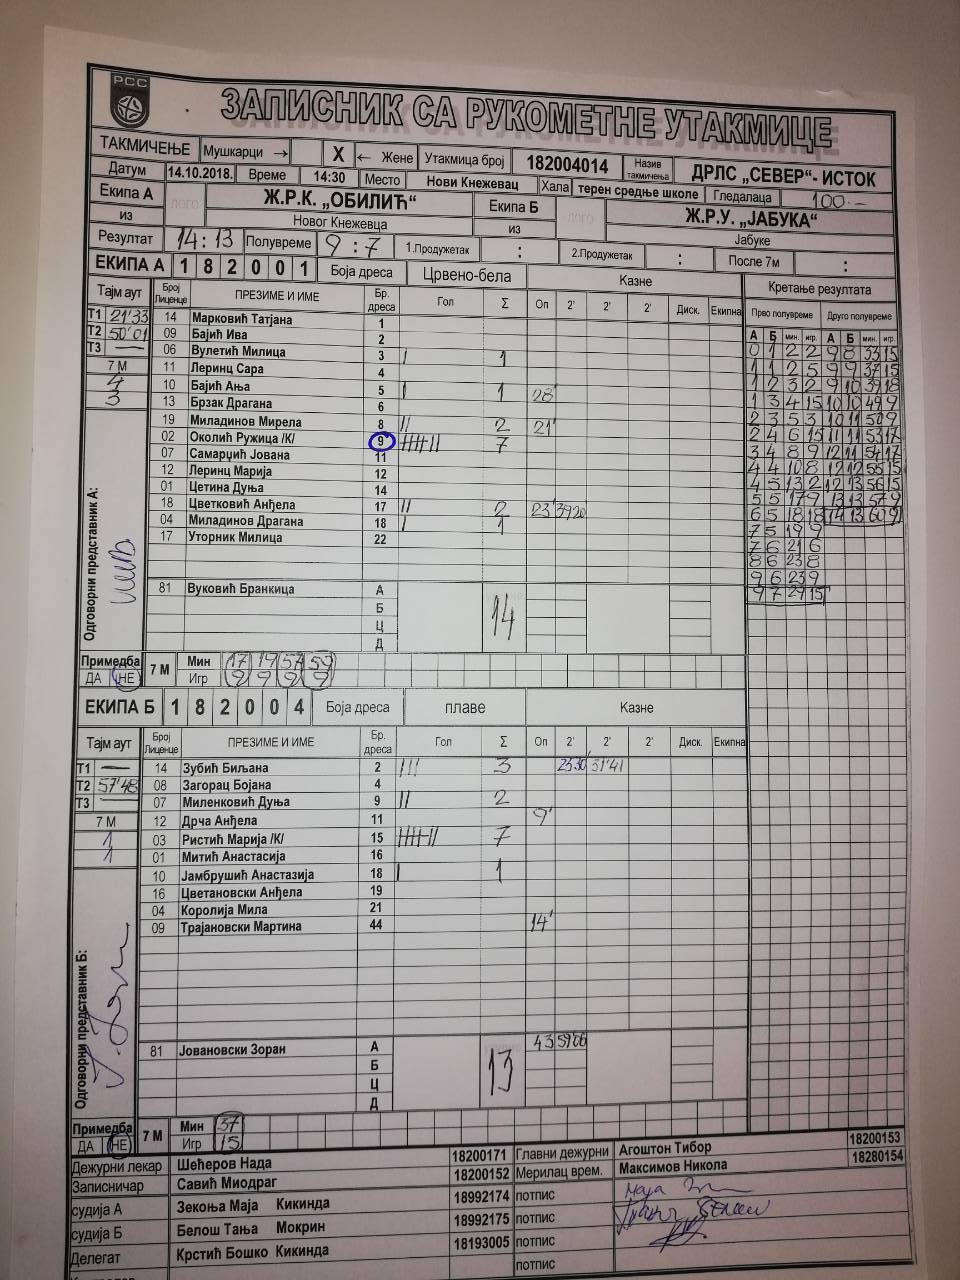 РСС
ЗАПИСНИК СА РУКОМЕТНЕ УТАКМИЦЕ
ТАКМИЧЕЊЕ Мушкарци → X ← Жене Утакмица број 182004014 Назив такмичења ДРЛС „СЕВЕР“- ИСТОК
Датум 14.10.2018. Време 14:30 Место Нови Кнежевац Хала терен средње школе Гледалаца 100.-
Екипа А лого Ж.Р.К. „ОБИЛИЋ“ Екипа Б лого Ж.Р.У. „ЈАБУКА“
из Новог Кнежевца из Јабуке
Резултат 14:13 Полувреме 9:7 1.Продужетак : 2.Продужетак : После 7м :
ЕКИПА А 1 8 2 0 0 1 Боја дреса Црвено-бела Казне Кретање резултата
Тајм аут Број Лиценце ПРЕЗИМЕ И ИМЕ Бр. дреса Гол Σ Оп 2' 2' 2' Диск. Екипна Прво полувреме Друго полувреме
А Б мин. игр. А Б мин. игр.
Т1 21'33 14 Марковић Татјана 1
Т2 50'01 09 Бајић Ива 2
Т3 — 06 Вулетић Милица 3 I 1
7 М 11 Леринц Сара 4
4 10 Бајић Ања 5 I 1 28'
3 13 Брзак Драгана 6
19 Миладинов Мирела 8 II 2 21'
02 Околић Ружица /К/ 9 IIIIIII 7
07 Самарџић Јована 11
12 Леринц Марија 12
01 Цетина Дуња 14
18 Цветковић Анђела 17 II 2 23' 3920
04 Миладинов Драгана 18 I 1
17 Уторник Милица 22
81 Вуковић Бранкица А
Б
Ц
Д
14
0 1 2 2 9 8 33 15
1 1 2 5 9 9 37 15
1 2 3 2 9 10 39 18
1 3 4 15 10 10 49 9
2 3 5 3 10 11 50 9
2 4 6 15 11 11 53 17
3 4 8 9 12 11 54 17
4 4 10 8 12 12 55 15
4 5 13 2 12 13 56 15
5 5 17 9 13 13 57 9
6 5 18 18 14 13 60 9
7 5 19 9
7 6 21 6
8 6 23 8
9 6 23 9
9 7 29 15
Одговорни представник А:
Примедба 7 М Мин 17 19 57 59
ДА НЕ Игр 9 9 9 9
ЕКИПА Б 1 8 2 0 0 4 Боја дреса плаве Казне
Тајм аут Број Лиценце ПРЕЗИМЕ И ИМЕ Бр. дреса Гол Σ Оп 2' 2' 2' Диск. Екипна
Т1 — 14 Зубић Биљана 2 III 3 2530 31'41
Т2 57'48 08 Загорац Бојана 4
Т3 — 07 Миленковић Дуња 9 II 2
7 М 12 Дрча Анђела 11 9'
1 03 Ристић Марија /К/ 15 IIIIIII 7
1 01 Митић Анастасија 16
10 Јамбрушић Анастазија 18 I 1
16 Цветановски Анђела 19
04 Королија Мила 21
09 Трајановски Мартина 44 14'
81 Јовановски Зоран А
Б
Ц
Д
13
Одговорни представник Б:
Примедба 7 М Мин 37
ДА НЕ Игр 15
Дежурни лекар Шећеров Нада 18200171 Главни дежурни Агоштон Тибор 18200153
Записничар Савић Миодраг 18200152 Мерилац врем. Максимов Никола 18280154
судија А Зекоња Маја Кикинда 18992174 потпис
судија Б Белош Тања Мокрин 18992175 потпис
Делегат Крстић Бошко Кикинда 18193005 потпис
потпис